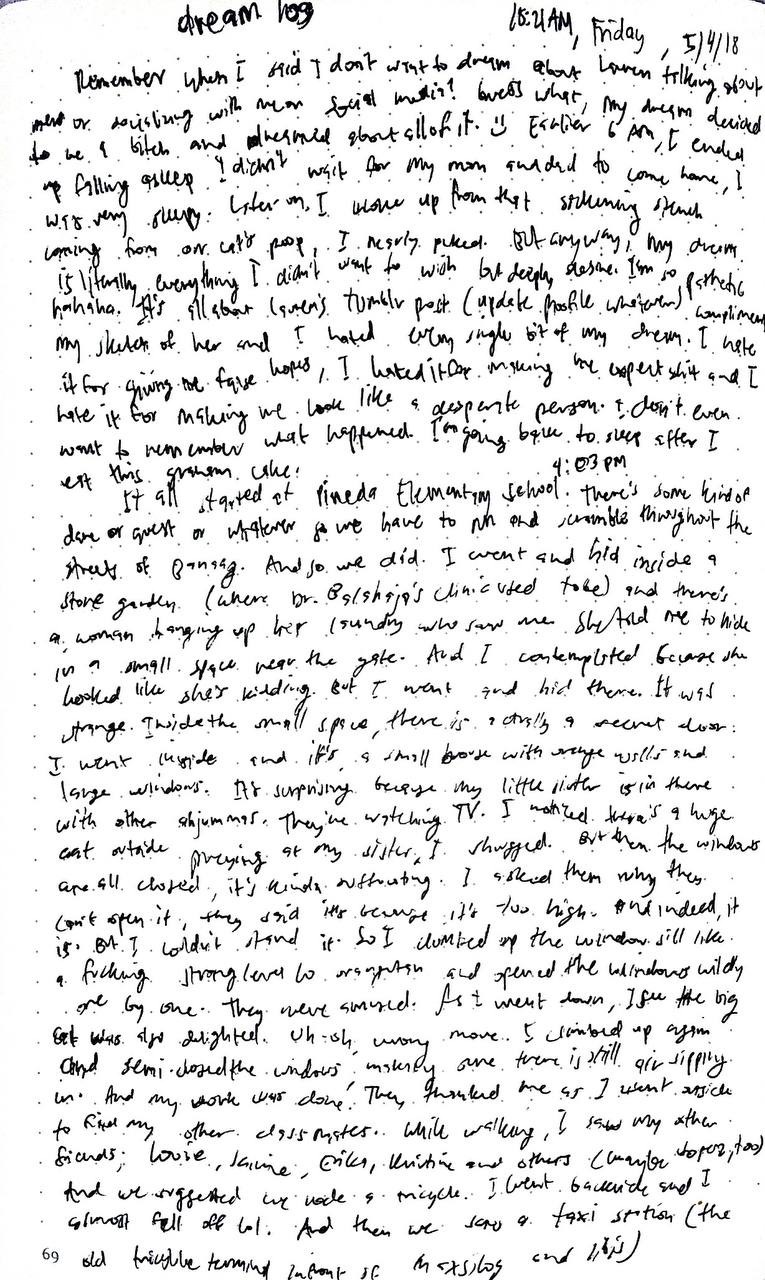 dream log
10:21AM, Friday, 5/4/18
Remember when I said I don't want to dream about Lauren talking about
or socializing with me on social media? Guess what, my dream decided
to be a bitch and dreamed about all of it. :) Earlier 6 AM, I ended
up falling asleep I didn't wait for my mom and dad to come home, I
was very sleepy. Later on, I woke up from that sickening stench
coming from our cat's poop, I nearly puked. But anyway, my dream
is literally everything I didn't want to wish but deeply desire. I'm so pathetic
hahaha. It's all about Lauren's tumblr post (update profile whatever) compliment
my sketch of her and I hated every single bit of my dream. I hate
it for giving me false hopes, I hated it for making me expect shit and I
hate it for making me look like a desperate person. I don't even
want to remember what happened. I'm going back to sleep after I
eat this graham cake.
4:03 PM
It all started at Pineda Elementary School. There's some kind of
dare or quest or whatever so we have to run and scramble throughout the
streets of . And so we did. I went and hid inside a
stone garden (where Dr. clinic used to be) and there's
a woman hanging up her laundry who saw me. She told me to hide
in a small space near the gate. And I contemplated because she
looked like she's kidding. But I went and hid there. It was
strange. Inside the small space, there is actually a secret door.
I went inside and it's a small house with orange walls and
large windows. It's surprising because my little sister is in there
with other ahjummas. They're watching TV. I noticed there's a huge
cat outside preying at my sister, I shrugged. But then the windows
are all closed, it's kinda suffocating. I asked them why they
can't open it, they said it's because it's too high. And indeed, it
is. But I couldn't stand it. So I climbed up the window sill like
a fucking strong level 60 orangutan and opened the windows wildly
one by one. They were amused. As I went down, I see the big
cat was also delighted. Uh-oh, wrong move. I climbed up again
and semi-closed the windows, making sure there is still air sipping
in. And my work was done! They thanked me as I went outside
to find my other classmates. While walking, I saw my other
friends; Louie, , Erika, Kristine and others (maybe , too)
And we suggested we ride a tricycle. I went backride and I
almost fell off lol. And then we saw a taxi station (the
old tricycle terminal infront of Maxsilog and )
69